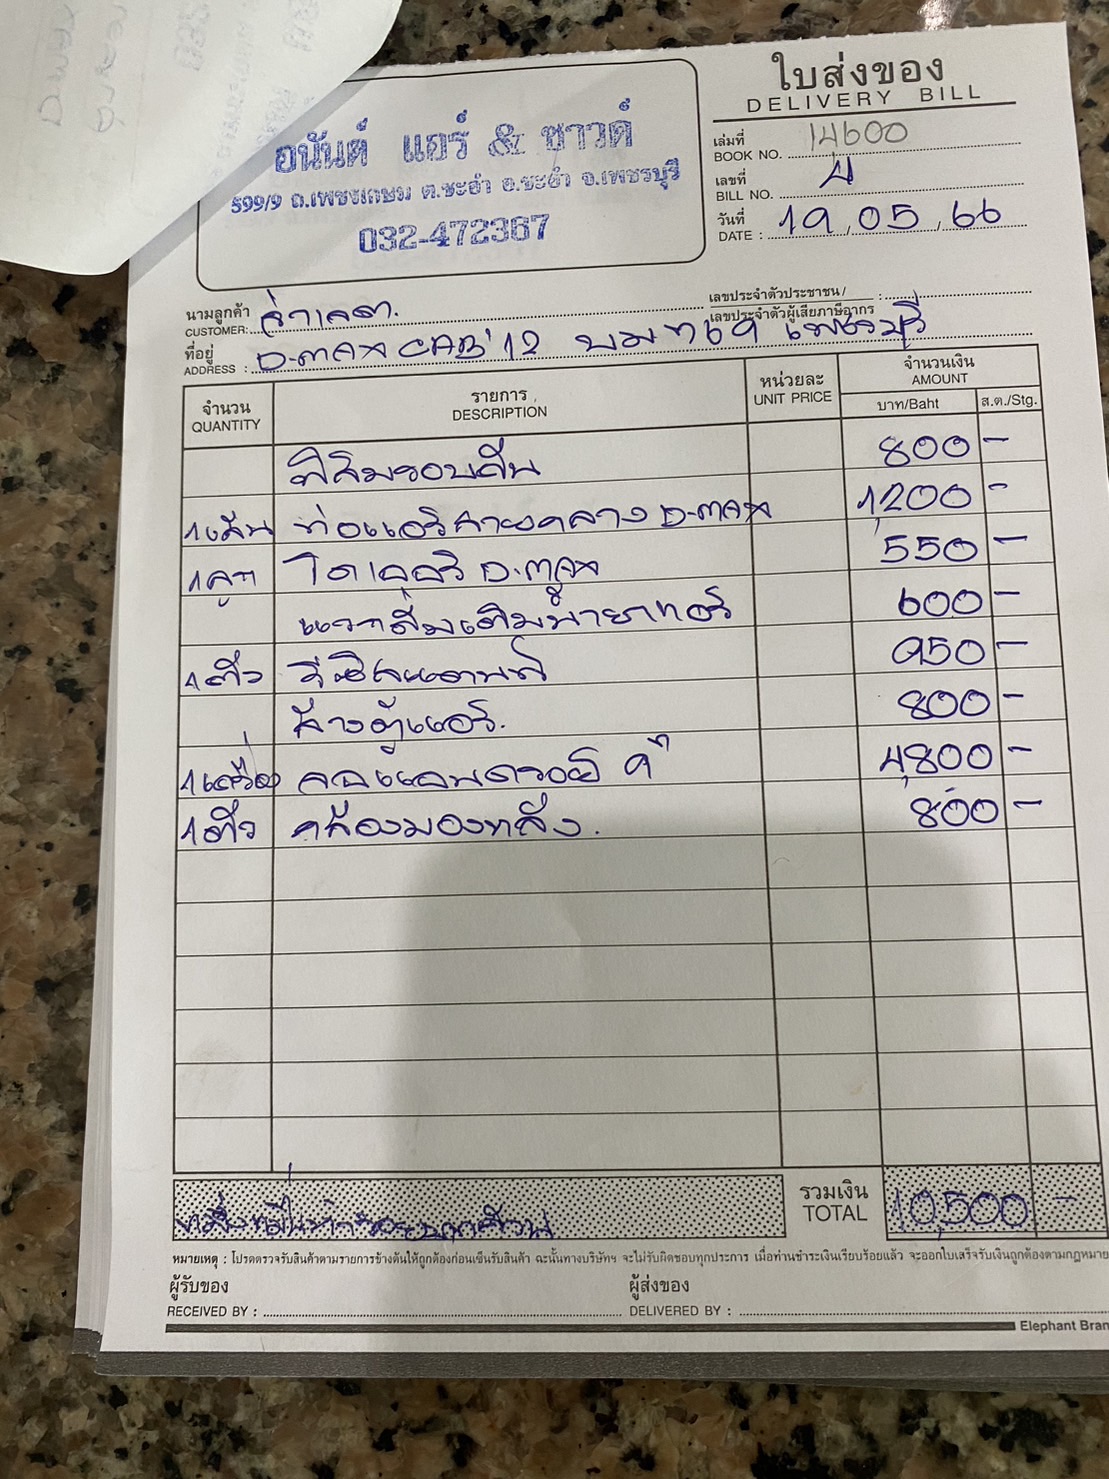 ใบส่งของ
DELIVERY BILL
อนันต์ แอร์ & ซาวด์
599/9 ถ.เพชรเกษม ต.ชะอำ อ.ชะอำ จ.เพชรบุรี
032-472367
เล่มที่
BOOK NO. 14600
เลขที่
BILL NO. 4
วันที่
DATE : 19,05,66
นามลูกค้า
CUSTOMER:
เลขประจำตัวประชาชน/
เลขประจำตัวผู้เสียภาษีอากร :
ที่อยู่
ADDRESS : D-max CAB'12 เพชรบุรี
จำนวน QUANTITY รายการ DESCRIPTION หน่วยละ UNIT PRICE จำนวนเงิน AMOUNT
บาท/Baht ส.ต./Stg.
ฟิล์มรอบคัน 800 -
1 เส้น ท่อแอร์สายกลาง D-max 1,200 -
1 ลูก ไดเออร์ D-max 550 -
600 -
1 ตัว 950 -
ล้างตู้แอร์. 800 -
1 เครื่อง จอแอนดรอย 9" 4,800 -
1 ตัว กล้องมองหลัง. 800 -
หนึ่งหมื่นห้าร้อยบาทถ้วน รวมเงิน TOTAL 10,500 -
หมายเหตุ : โปรดตรวจรับสินค้าตามรายการข้างต้นให้ถูกต้องก่อนเซ็นรับสินค้า ฉะนั้นทางบริษัทฯ จะไม่รับผิดชอบทุกประการ เมื่อท่านชำระเงินเรียบร้อยแล้ว จะออกใบเสร็จรับเงินถูกต้องตามกฎหมาย
ผู้รับของ
RECEIVED BY :
ผู้ส่งของ
DELIVERED BY :
Elephant Bran